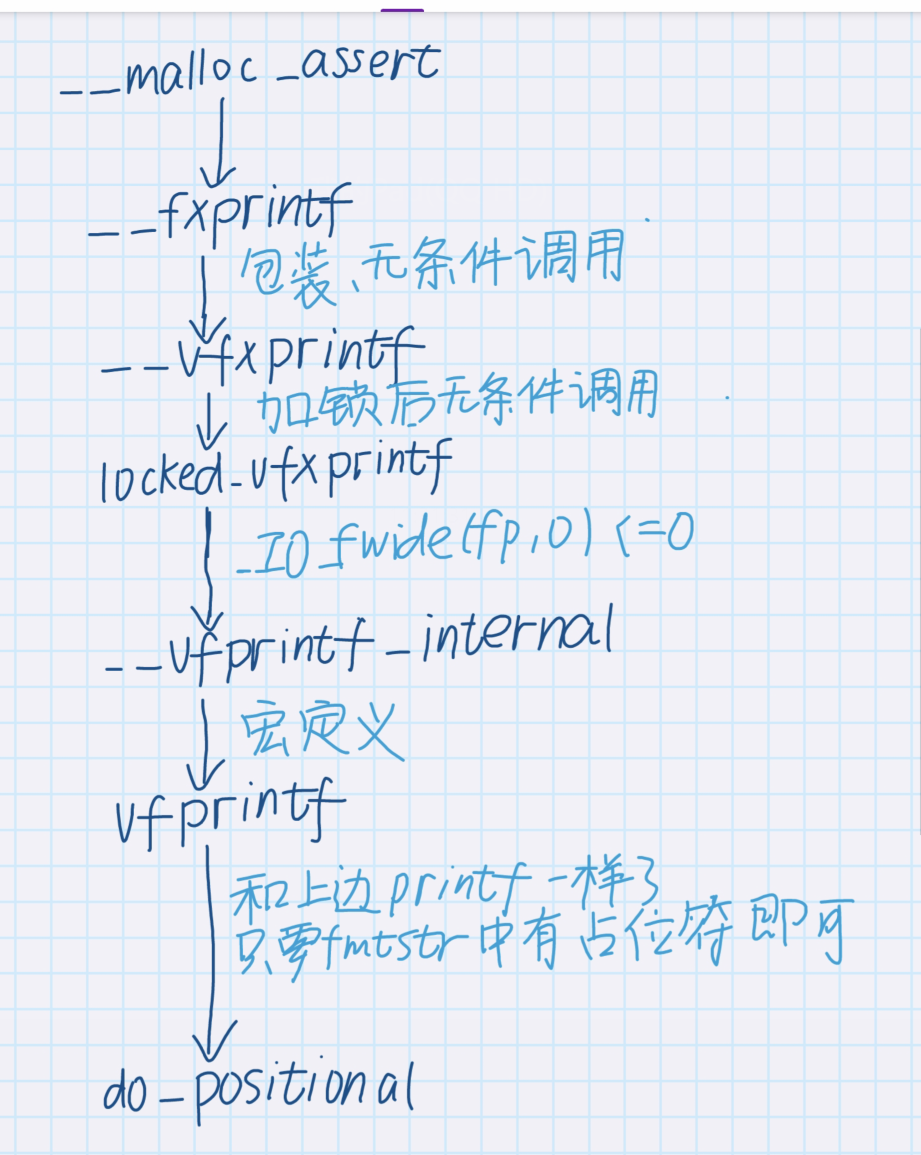 __malloc_assert
__fxprintf
包装、无条件调用
__vfxprintf
加锁后无条件调用
locked_vfxprintf
_IO_fwide(fp,0)<=0
__vfprintf_internal
宏定义
vfprintf
和上边printf一样了
只要fmtstr中有占位符即可
do_positional